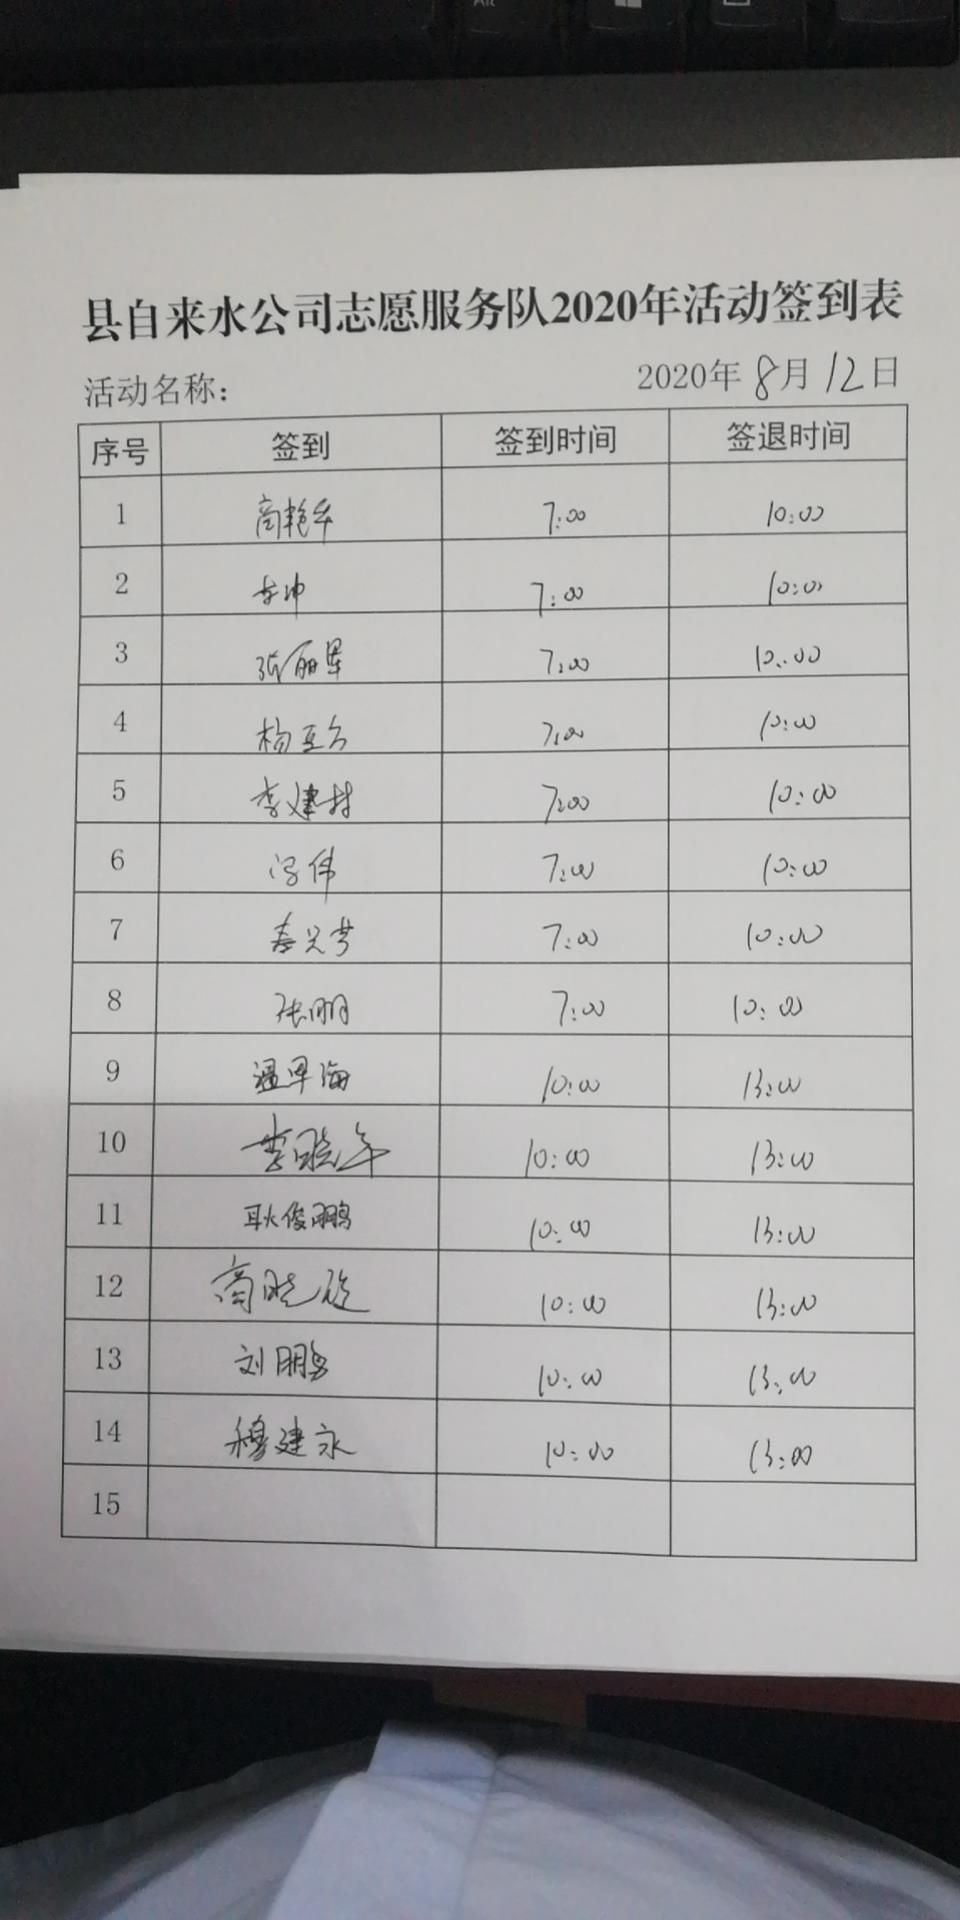 县自来水公司志愿服务队2020年活动签到表
活动名称: 2020年8月12日
序号 签到 签到时间 签退时间
1 商艳华 7:00 10:00
2 7:00 10:00
3 张丽军 7:00 10:00
4 杨亚 7:00 10:00
5 李建村 7:00 10:00
6 冯伟 7:00 10:00
7 7:00 10:00
8 张朋 7:00 10:00
9 温早海 10:00 13:00
10 李晓年 10:00 13:00
11 耿俊鹏 10:00 13:00
12 商晓 10:00 13:00
13 刘朋勇 10:00 13:00
14 穆建永 10:00 13:00
15